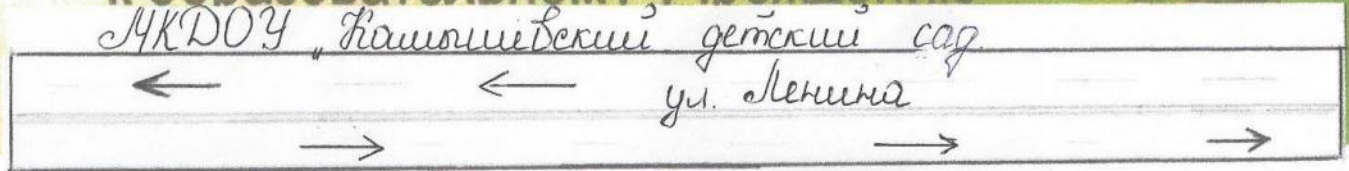 МКДОУ „Камышевский детский сад.
ул. Ленина